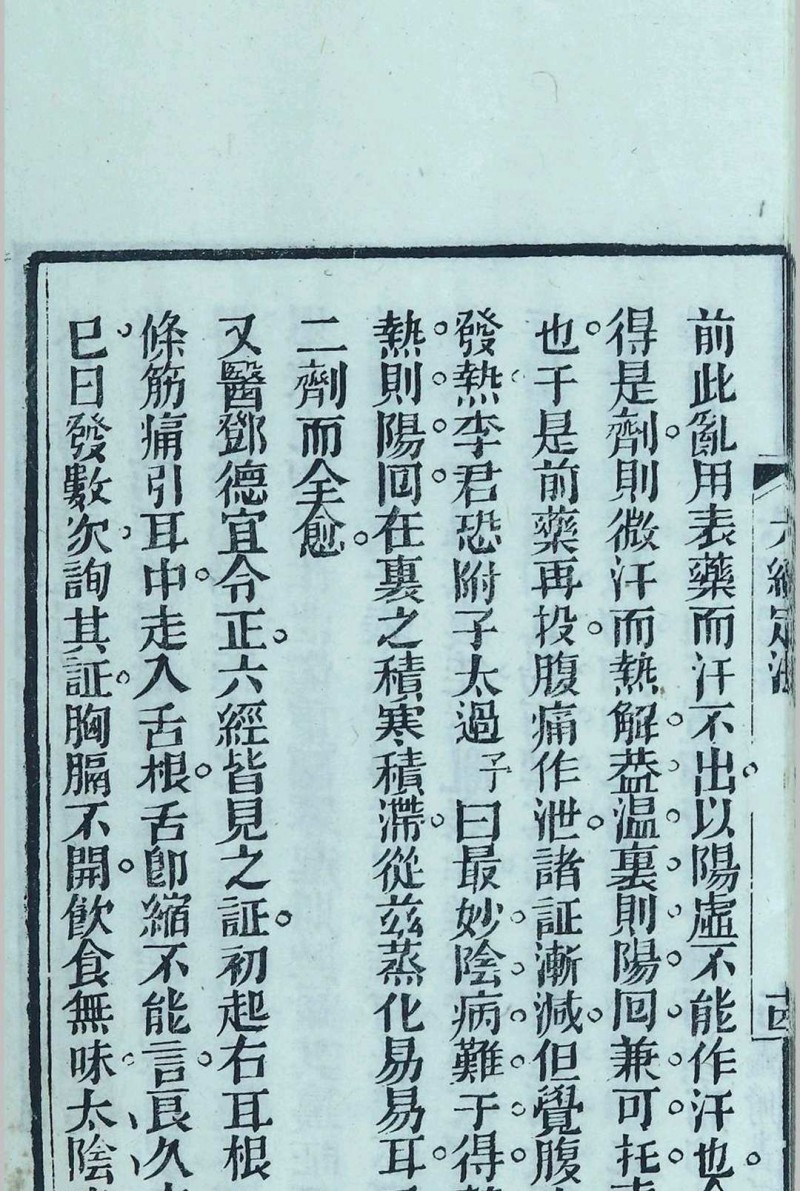 前此亂用表藥而汗不出以陽虛不能作汗也
得是劑則微汗而熱解葢温裏則陽回兼可托
也于是前藥再投腹痛作泄諸証漸減但覺腹
發熱李君恐附子太過予曰最妙陰病難于得
熱則陽回在裏之積寒積滯從茲蒸化易易耳
二劑而全愈
又醫鄧德宜令正六經皆見之証初起右耳根
條筋痛引耳中走入舌根舌卽縮不能言良久
巳日發數次詢其証胸膈不開飲食無味太陰
六經定法
十四